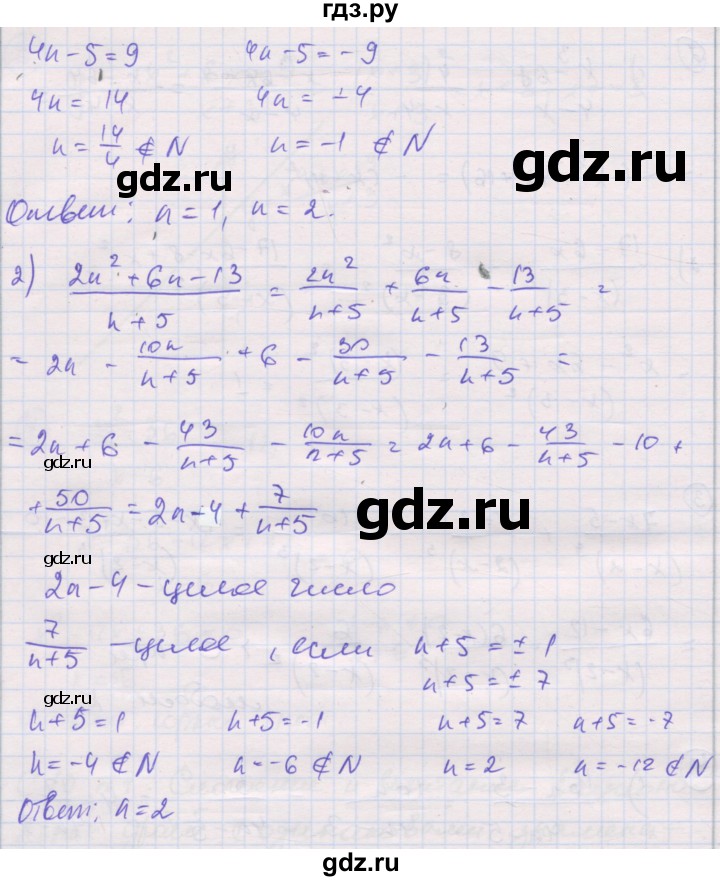 гдз.ру
4n - 5 = 9 4n - 5 = - 9
4n = 14 4n = -4
n = 14/4 ∉ N n = -1 ∉ N
gdz.ru gdz.ru
Ответ: n = 1, n = 2.
2) (2n² + 6n - 13)/(n + 5) = 2n²/(n+5) + 6n/(n+5) - 13/(n+5) =
= 2n - 10n/(n+5) + 6 - 30/(n+5) - 13/(n+5) =
= 2n + 6 - 43/(n+5) - 10n/(n+5) = 2n + 6 - 43/(n+5) - 10 +
gdz.ru gdz.ru
+ 50/(n+5) = 2n - 4 + 7/(n+5)
gdz.ru gdz.ru
2n - 4 - целое число
7/(n+5) - целое, если n + 5 = ± 1
n + 5 = ± 7
n + 5 = 1 n + 5 = -1 n + 5 = 7 n + 5 = -7
n = -4 ∉ N n = -6 ∉ N n = 2 n = -12 ∉ N
gdz.ru gdz.ru
Ответ: n = 2
gdz.ru